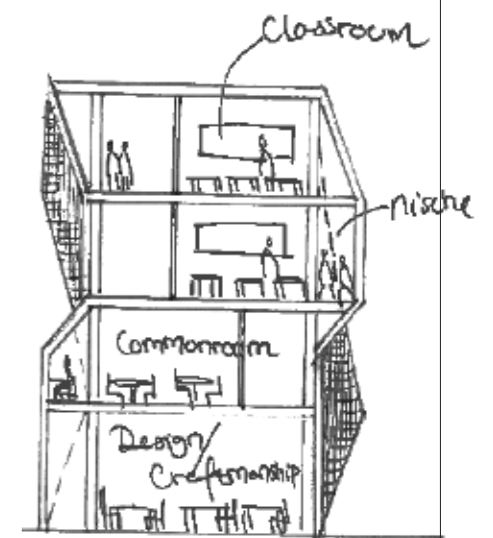 Classroom
nische
Commonroom
Design
Craftsmanship